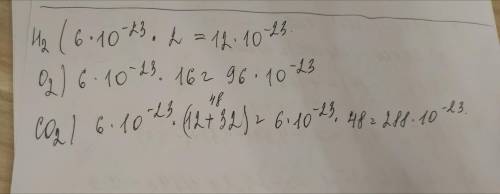 H₂ ( 6 · 10⁻²³ · 2 = 12 · 10⁻²³.
O₂) 6 · 10⁻²³ · 16 = 96 · 10⁻²³
48
CO₂) 6 · 10⁻²³ · (12 + 32) = 6 · 10⁻²³ · 48 = 288 · 10⁻²³.